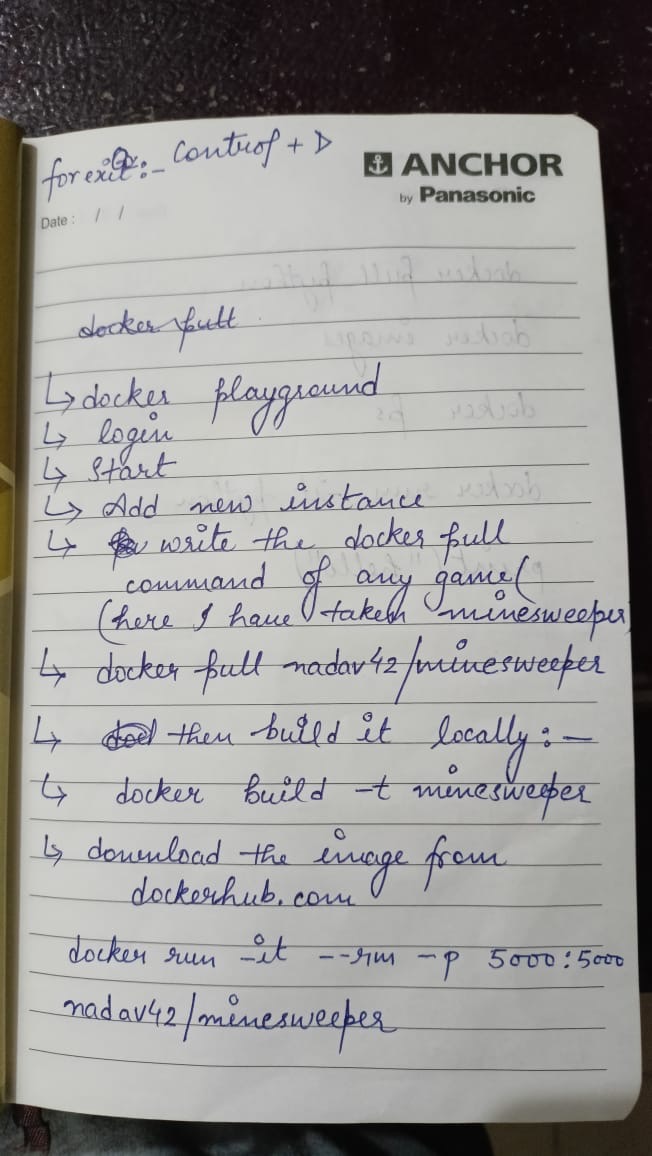 for exit:- Control + D
ANCHOR
by Panasonic
Date : / /
docker pull
↳ docker playground
↳ login
↳ Start
↳ Add new instance
↳ write the docker pull
command of any game (
(here I have taken minesweeper)
↳ docker pull nadav42/minesweeper
↳ then build it locally :-
↳ docker build -t minesweeper
↳ download the image from
dockerhub.com
docker run -it --rm -p 5000:5000
nadav42/minesweeper